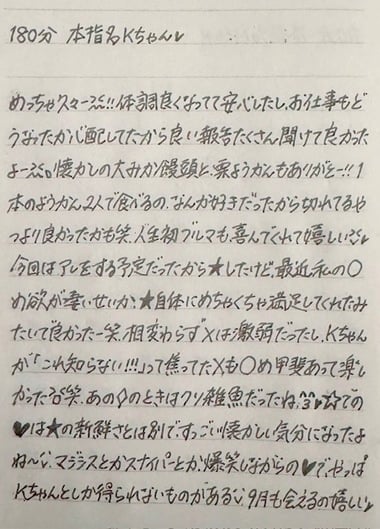 180分 本指名Kちゃん♥
めっちゃ久々〜!! 体調良くなってて安心したし、お仕事もど
うなったか心配してたから良い報告たくさん聞けて良かった
よー。懐かしの大みか饅頭と、栗ようかんもありがとー!! 1
本のようかん2人で食べるの、なんか好きだったから切れてるや
つより良かったかも笑 人生初ブルマも喜んでくれて嬉しい
今回はアレをする予定だったから★したけど、最近私の〇
め欲が凄いせいか、★自体にめちゃくちゃ満足してくれたみ
たいで良かったー笑 相変わらず×は激弱だったし、Kちゃん
が「これ知らない!!!」って焦ってた×も〇め甲斐あって楽し
かった笑 あの◇のときはクソ雑魚だったね、☆での
♥は★の新鮮さとは別で、すっごい懐かしい気分になったよ
ね〜 マジラスとかスナイパーとか、爆笑しながらの♥で、やっぱ
Kちゃんとしか得られないものがある 9月も会えるの嬉しい♥